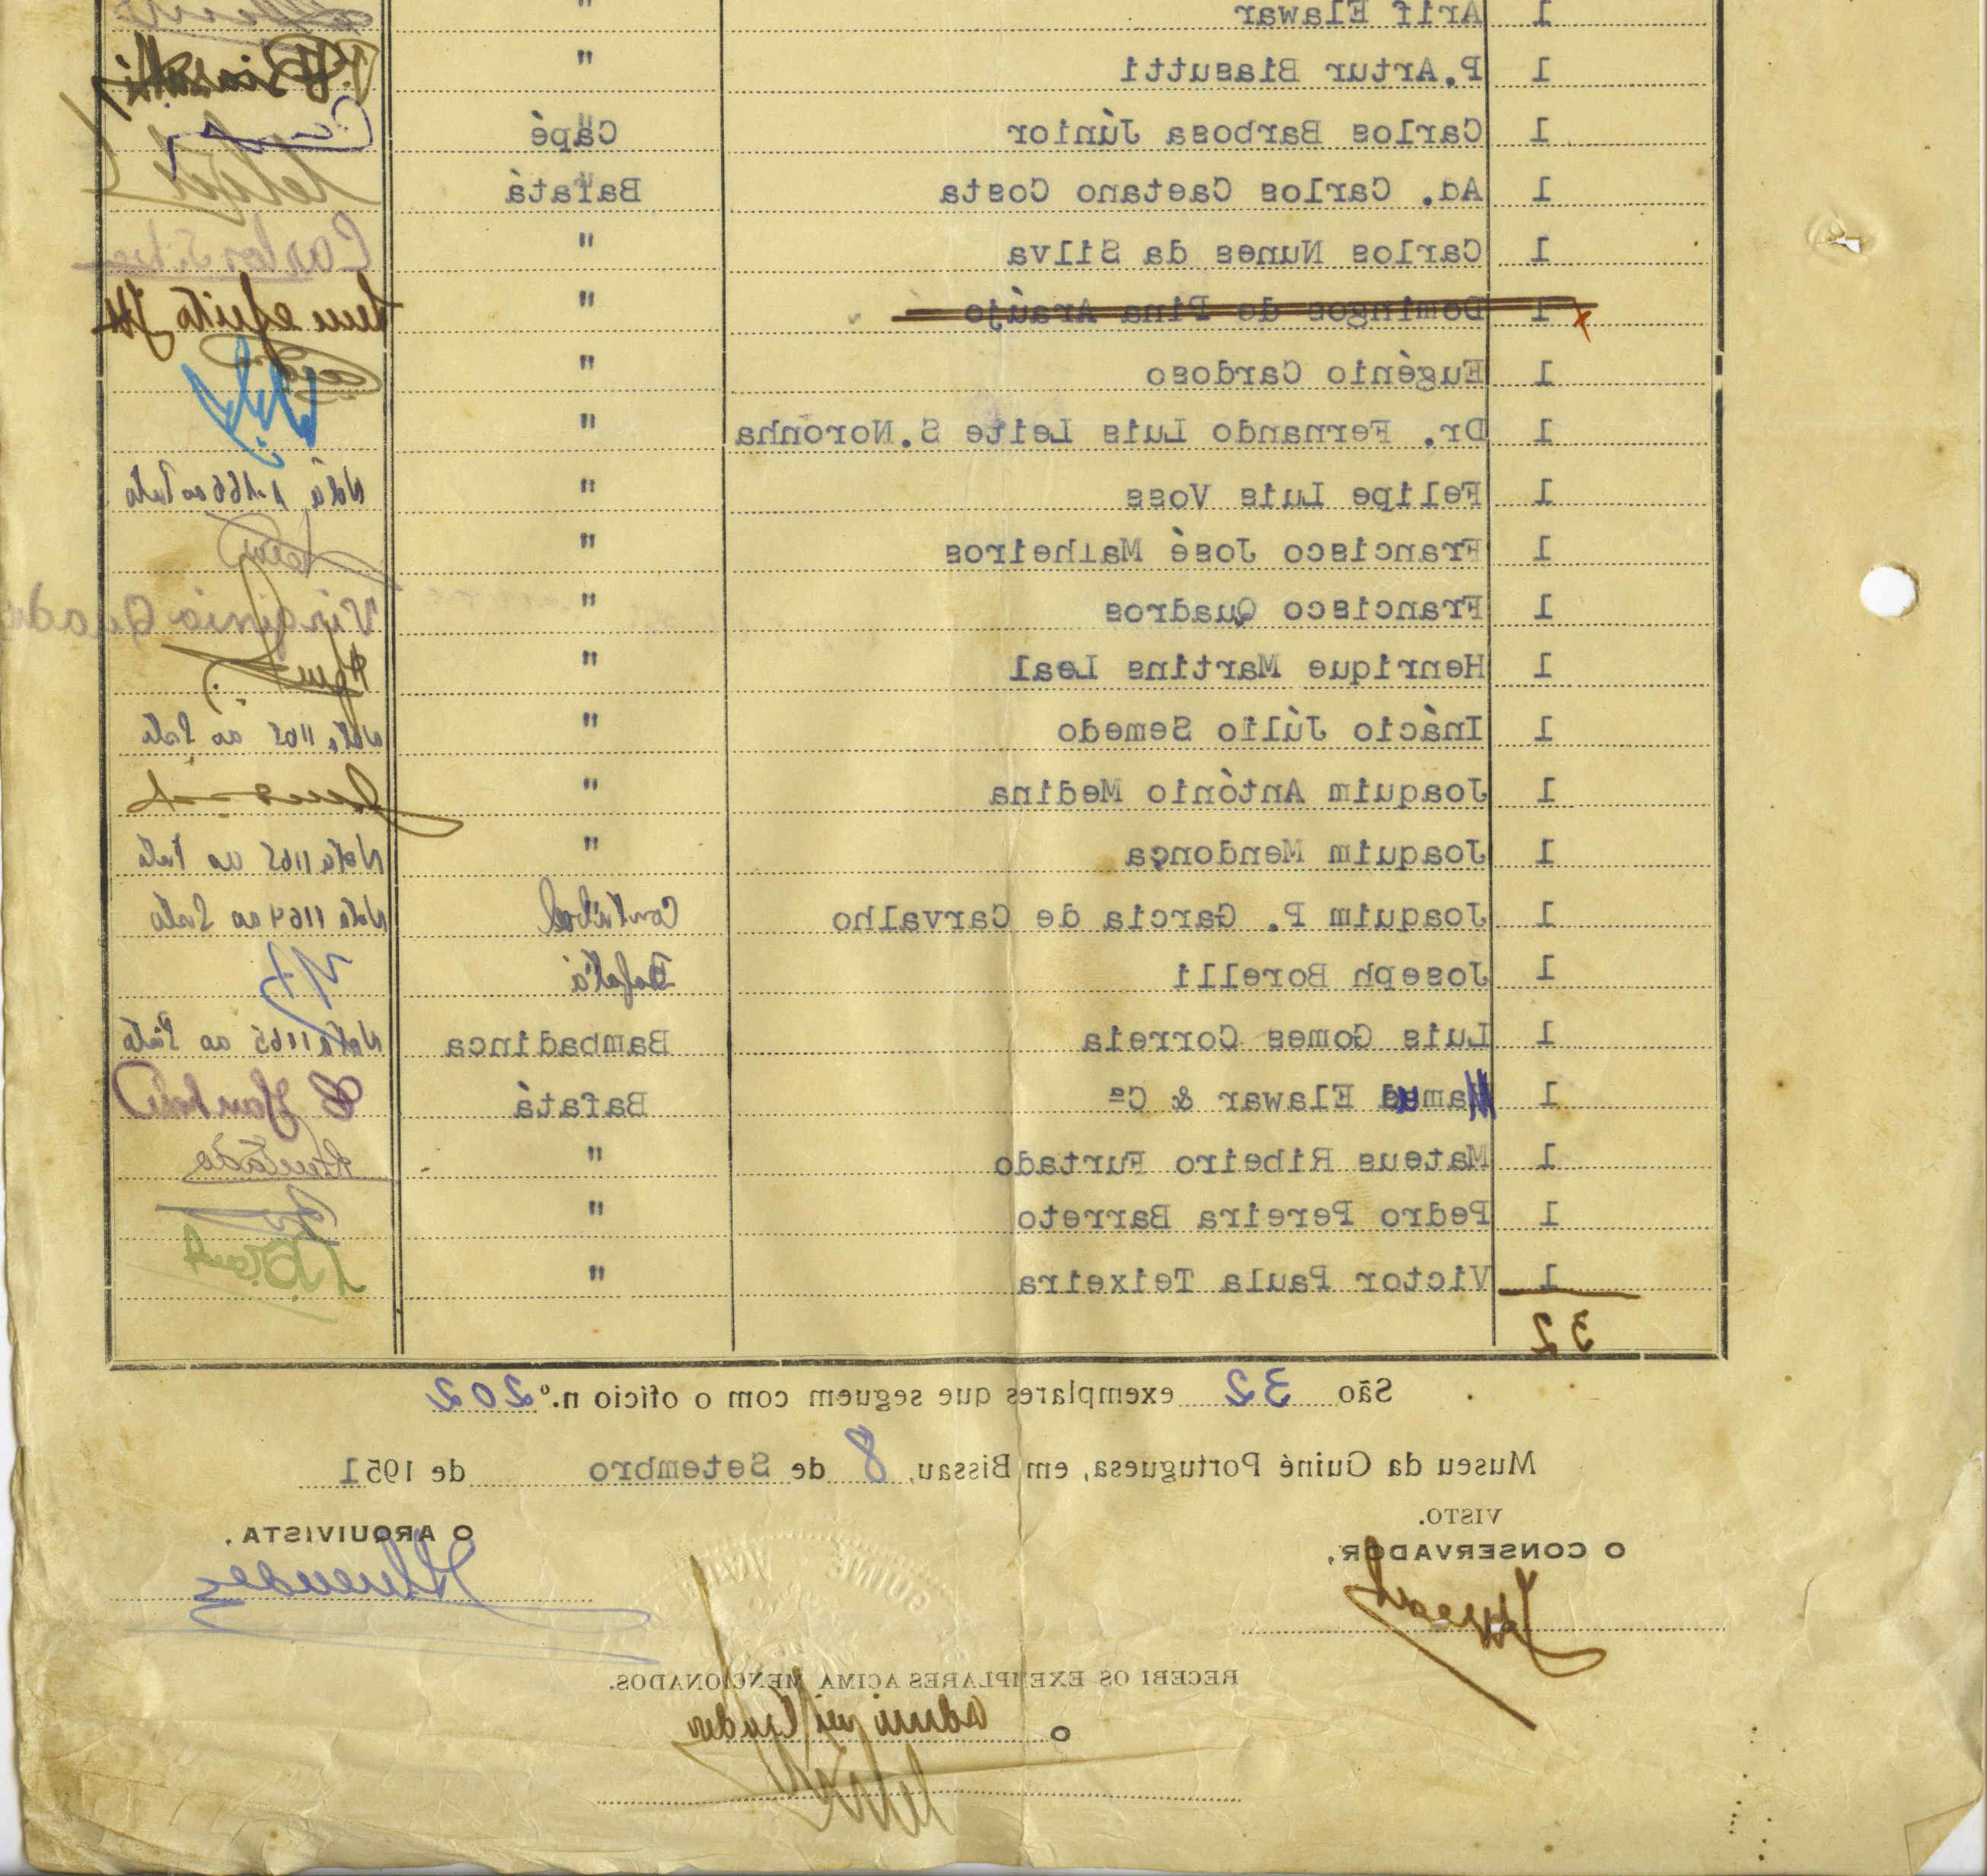 1 Arif Elawar "
1 P. Artur Biasutti "
1 Carlos Barbosa Júnior Capé
1 Ad. Carlos Caetano Costa Bafatá
1 Carlos Nunes da Silva " Carlos Silva
1 Domingos de Pina Araújo " sem efeito
1 Eugénio Cardoso "
1 Dr. Fernando Luis Leite S. Noronha "
1 Felipe Luis Voss " Nota
1 Francisco José Malheiros "
1 Francisco Quadros " Virginia
1 Henrique Martins Leal "
1 Inácio Júlio Semedo " Nota 1165 ao
1 Joaquim António Medina "
1 Joaquim Mendonça " Nota 1165 ao
1 Joaquim P. Garcia de Carvalho Contuboel Nota 1164 ao
1 Joseph Borelli Bafatá
1 Luis Gomes Correia Bambadinca Nota 1165 ao
1 Elawar & Cª Bafatá
1 Mateus Ribeiro Furtado "
1 Pedro Pereira Barreto "
1 Victor Paula Teixeira "
32
São 32 exemplares que seguem com o ofício n.º 202
Museu da Guiné Portuguesa, em Bissau, 8 de Setembro de 1951
VISTO.
O CONSERVADOR,
O ARQUIVISTA,
GUINÉ
RECEBI OS EXEMPLARES ACIMA MENCIONADOS.
O administrador